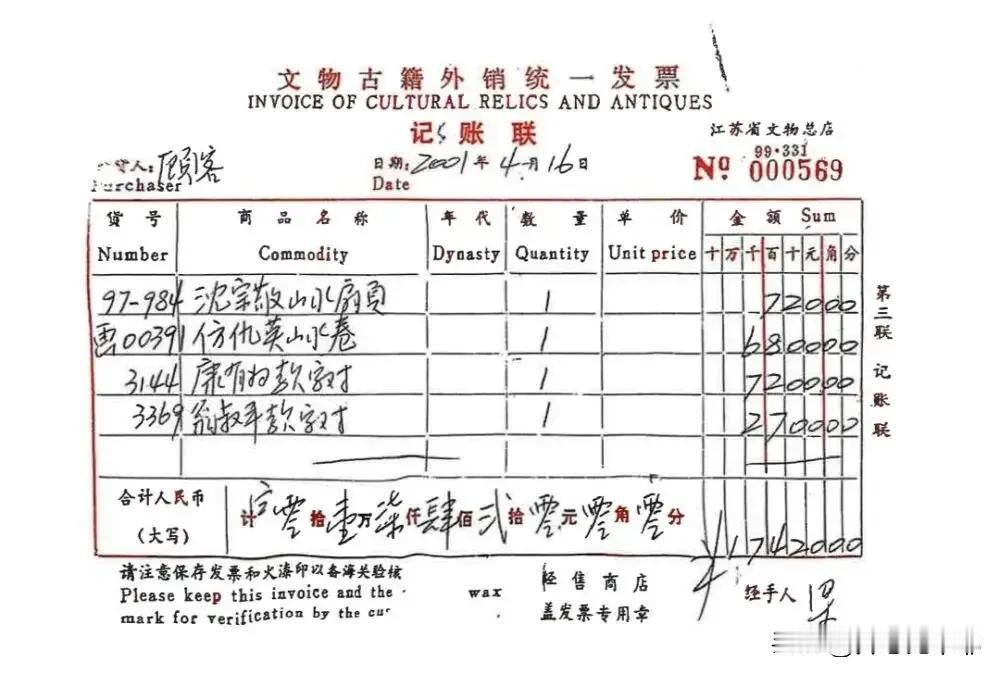 文物古籍外销统一发票
INVOICE OF CULTURAL RELICS AND ANTIQUES
记账联
江苏省文物总店
99·331
Nº 000569
人: 顾客
Purchaser
日期: 2001年4月16日
Date
货号 商品名称 年代 数量 单价 金额 Sum
Number Commodity Dynasty Quantity Unit price 十万千百十元角分
97-984 沈宗敬山水扇页 1 72000
画00391 仿仇英山水卷 1 680000
3144 康有为款字对 1 720000
3369 翁叔平款字对 1 270000
合计人民币
(大写)
计 零拾壹万柒仟肆佰贰拾零元零角零分 ¥1742000
第三联 记账联
请注意保存发票和火漆印以备海关验核
Please keep this invoice and the wax
mark for verification by the cu
经售商店
盖发票专用章
经手人